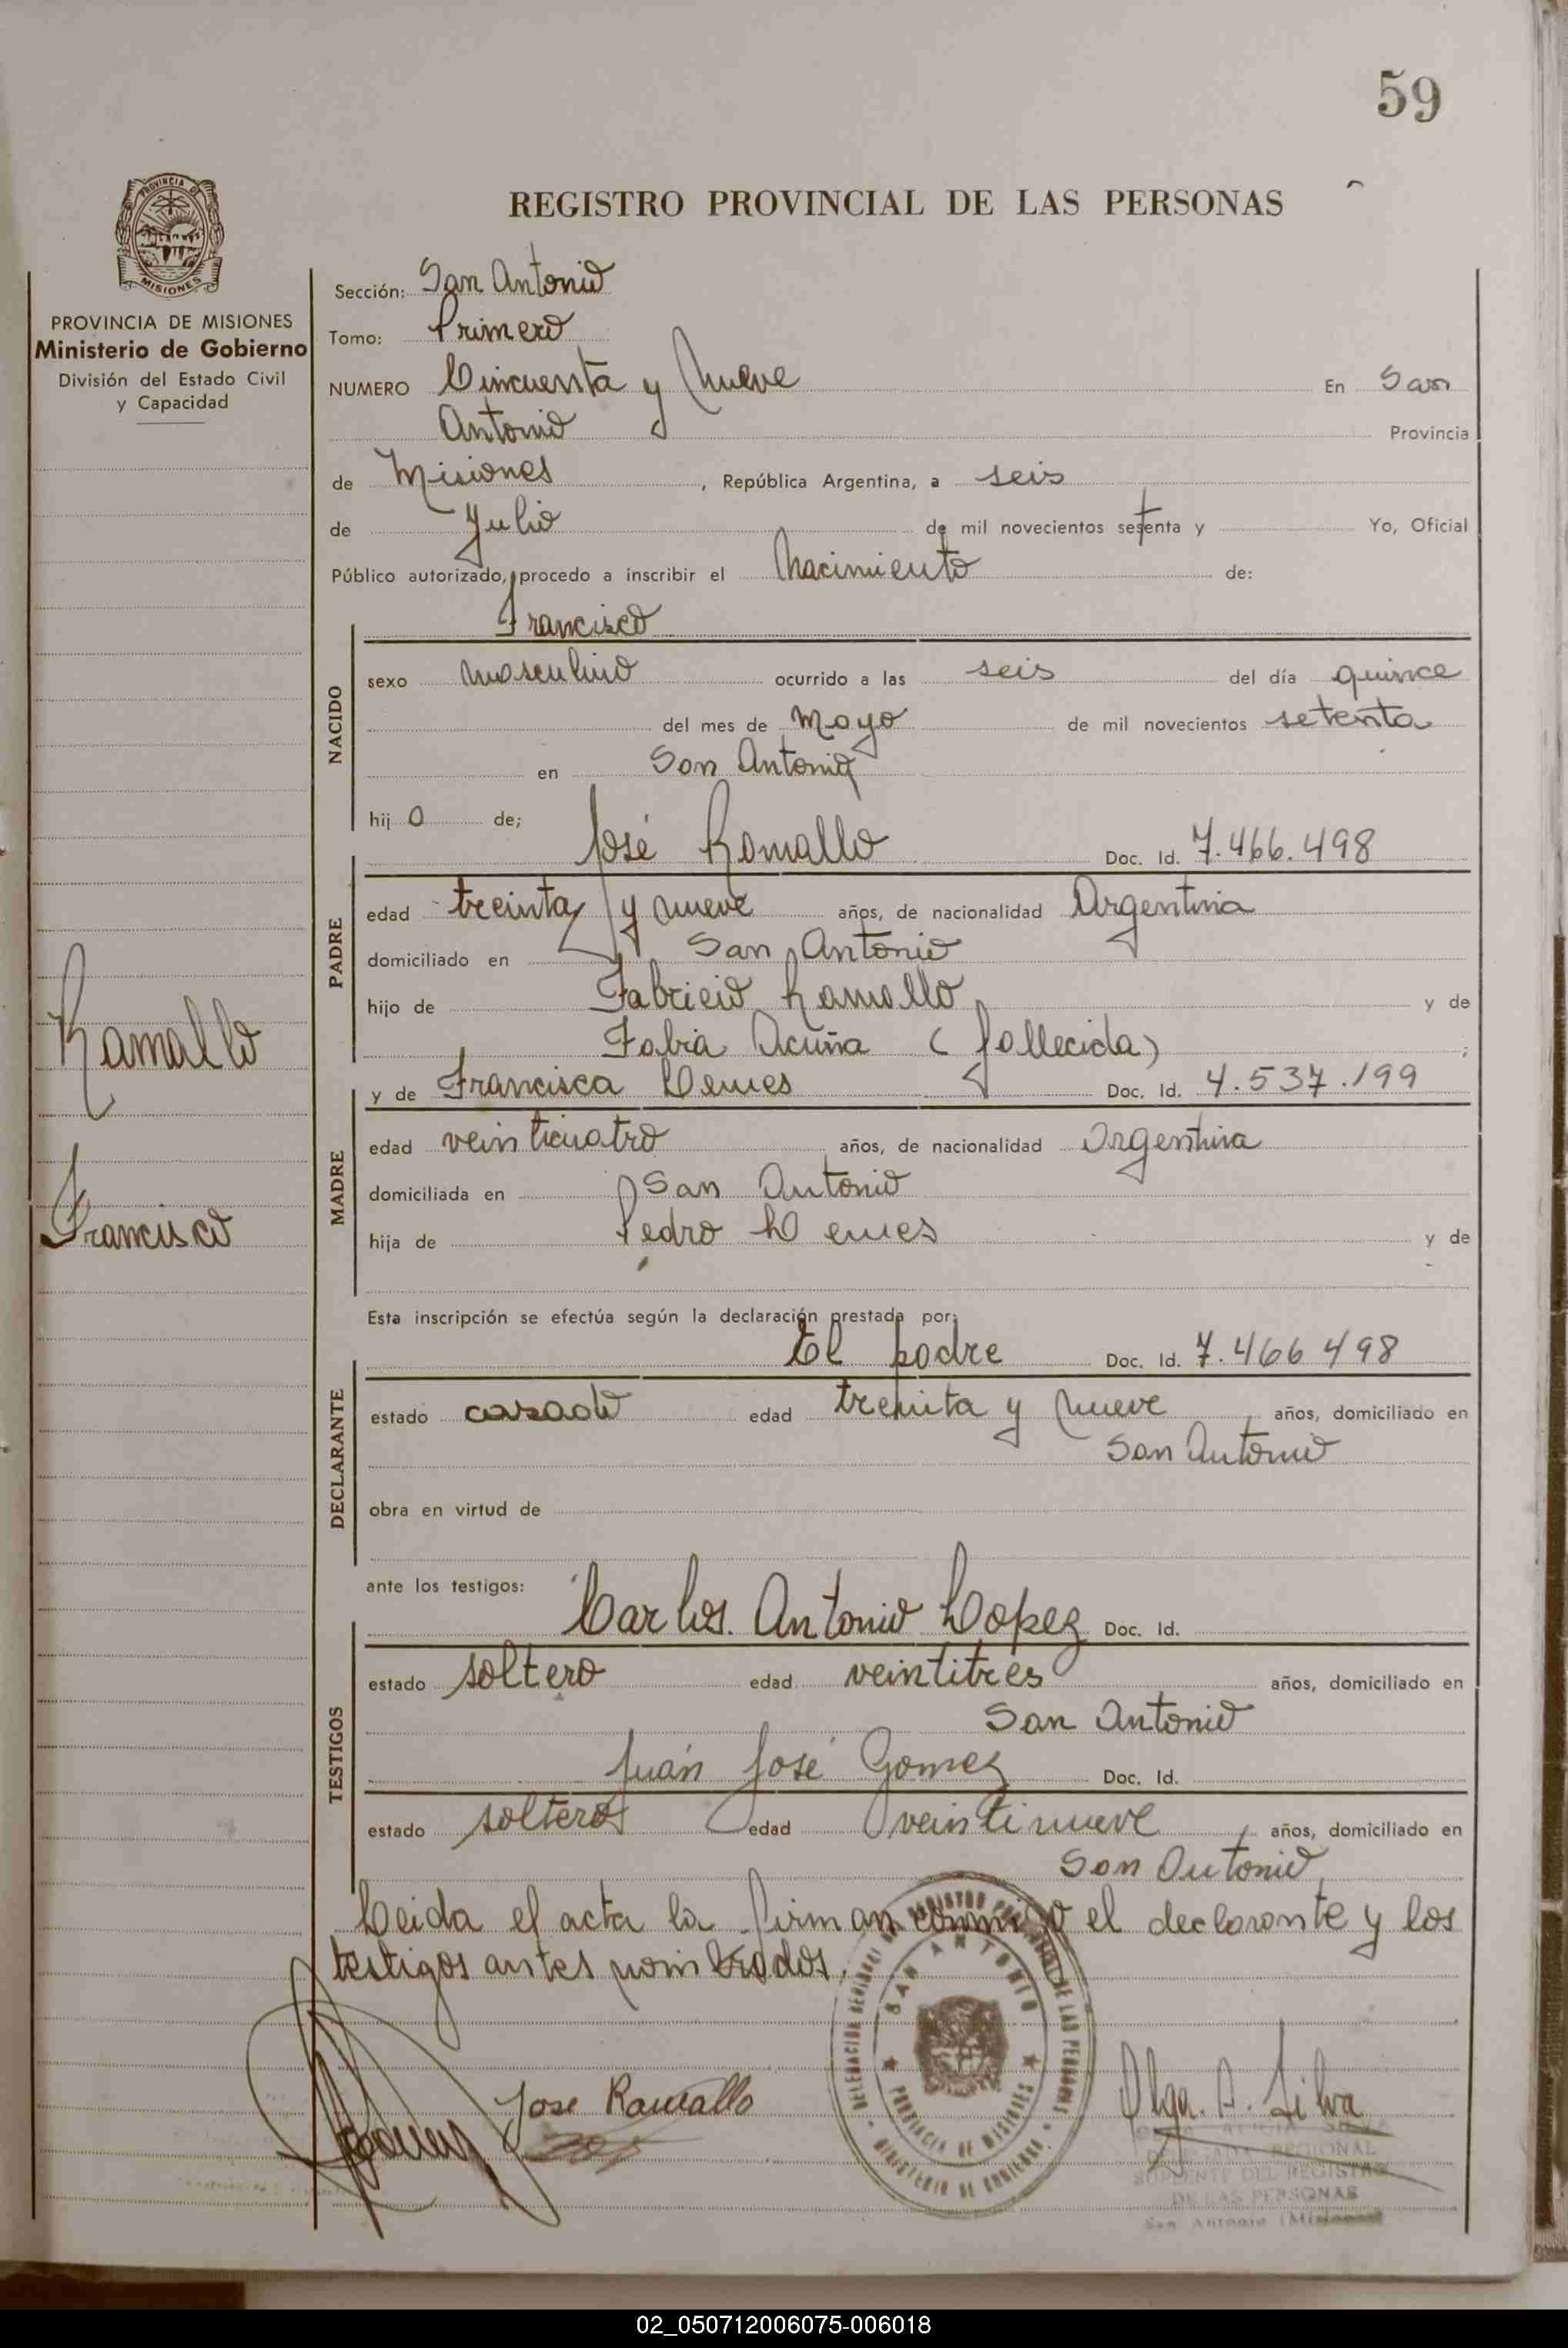 59
REGISTRO PROVINCIAL DE LAS PERSONAS
PROVINCIA DE
MISIONES
PROVINCIA DE MISIONES
Ministerio de Gobierno
División del Estado Civil
y Capacidad
Ramallo
Francisco
Sección: San Antonio
Tomo: Primero
NUMERO Cincuenta y Nueve En San
Antonio Provincia
de Misiones, República Argentina, a seis
de Julio de mil novecientos setenta y Yo, Oficial
Público autorizado, procedo a inscribir el Nacimiento de:
Francisco
NACIDO
sexo masculino ocurrido a las seis del día quince
del mes de Mayo de mil novecientos setenta
en San Antonio
hij o de;
José Ramallo Doc. Id. 7.466.498
PADRE
edad treinta y nueve años, de nacionalidad Argentina
domiciliado en San Antonio
hijo de Fabricio Ramallo y de
Fabia Acuña (fallecida) ;
y de Francisca Lemes Doc. Id. 4.537.199
MADRE
edad veinticuatro años, de nacionalidad Argentina
domiciliada en San Antonio
hija de Pedro Lemes y de
Esta inscripción se efectúa según la declaración prestada por:
El padre Doc. Id. 7.466 498
DECLARANTE
estado casado edad treinta y nueve años, domiciliado en
San Antonio
obra en virtud de
ante los testigos:
Carlos Antonio Lopez Doc. Id.
TESTIGOS
estado soltero edad veintitres años, domiciliado en
San Antonio
Juan José Gomez Doc. Id.
estado soltero edad veintinueve, años, domiciliado en
San Antonio
Leida el acta la firman conmigo el declarante y los
testigos antes nombrados.
Jose Ramallo
SAN ANTONIO
PROVINCIA DE MISIONES
Olga. A. Silva
SUPLENTE DEL REGISTRO
DE LAS PERSONAS
San Antonio (Misiones)
02_050712006075-006018